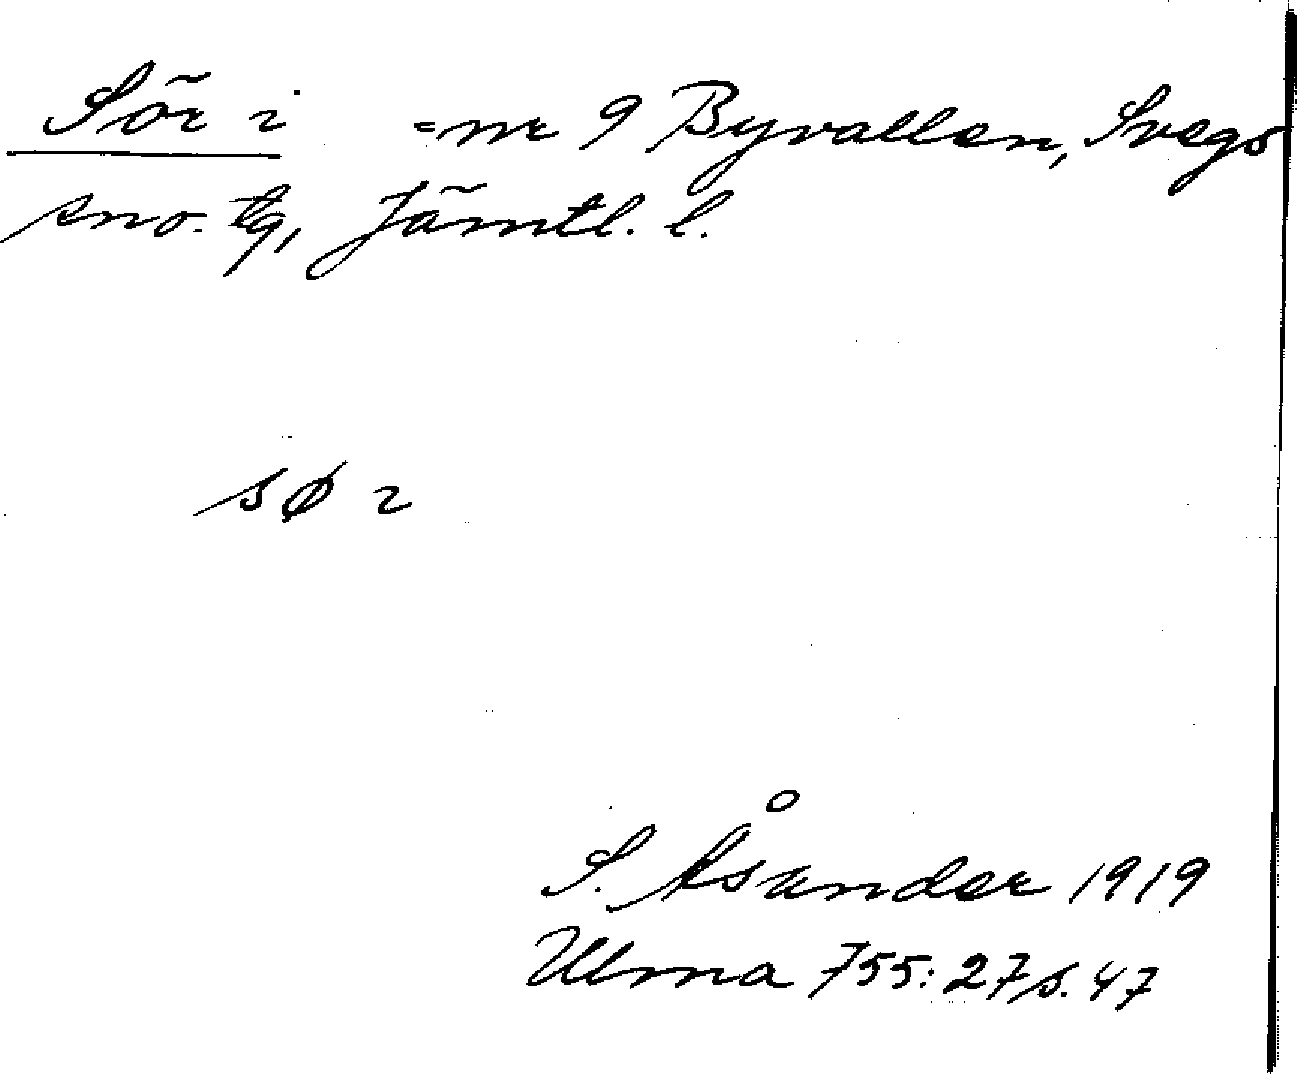 Sör i = nr 9 Byvallen, Svegs
sno. tg, Jämtl. l.
sø ɿ
S. Åsander 1919
Ulma 755:27 s. 47